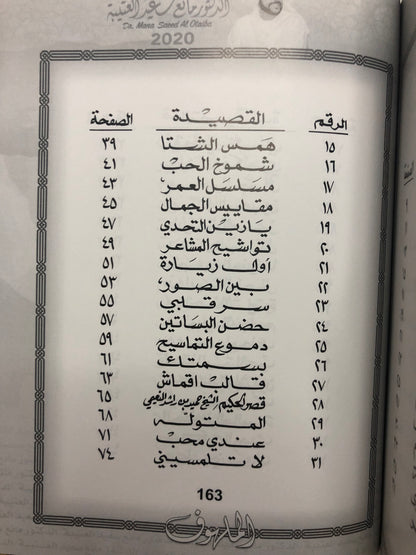 الدكتور مانع سعيد العتيبة
Dr. Mana Saeed Al Otaiba
2020
الرقم القصيدة الصفحة
١٥ همس الشتا ٣٩
١٦ شموخ الحب ٤١
١٧ مسلسل العمر ٤٣
١٨ مقاييس الجمال ٤٥
١٩ يا زين التحدي ٤٧
٢٠ تواشيح المشاعر ٤٩
٢١ أول زيارة ٥١
٢٢ بين الصور ٥٣
٢٣ سر قلبي ٥٥
٢٤ حضن البساتين ٥٧
٢٥ دموع التماسيح ٥٩
٢٦ بسمتك ٦١
٢٧ قالب اقماش ٦٣
٢٨ قصر الحكيم الشيخ حميد بن راشد النعيمي ٦٥
٢٩ المتوله ٦٨
٣٠ عندي محب ٧١
٣١ لا تلمسيني ٧٤
163
الملهوف